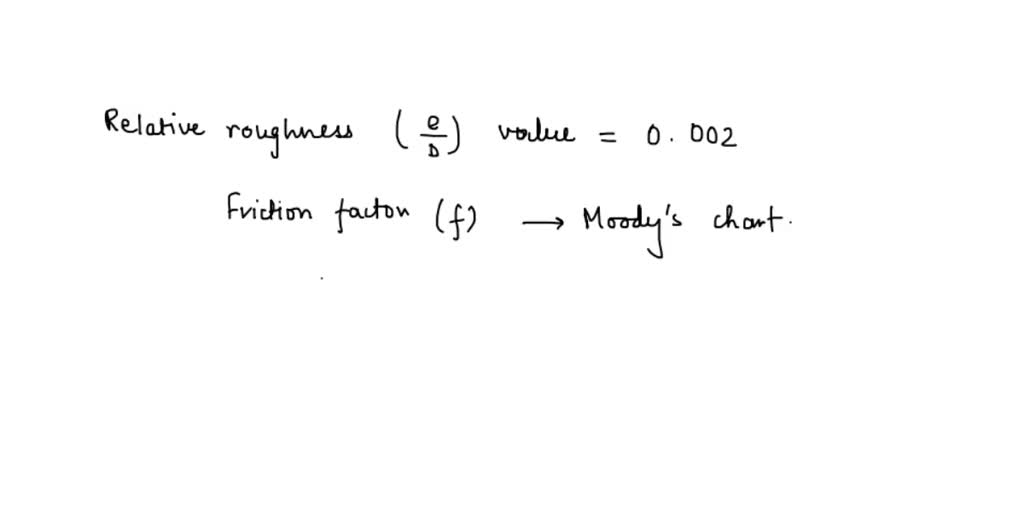 Relative roughness (e/D) value = 0.002
Friction factor (f) → Moody's chart.